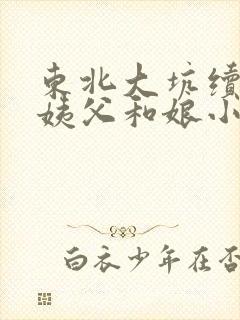 东北大坑续
姨父和娘小
白衣少年在否